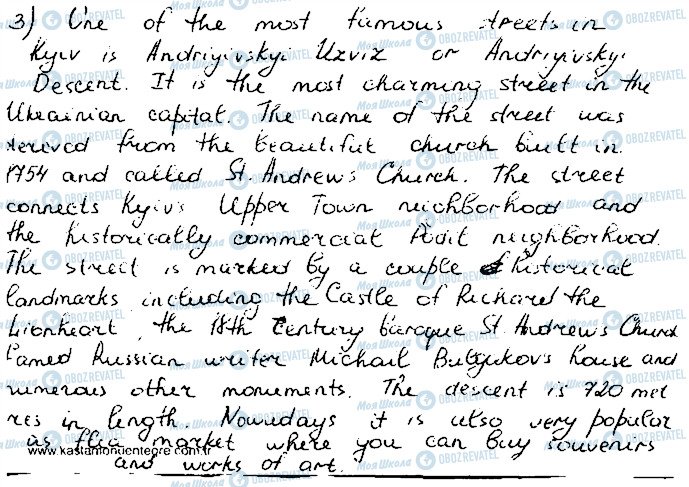 3) One of the most famous streets in
Kyiv is Andriyivskyi Uzviz or Andriyivskyi
Descent. It is the most charming street in the
Ukrainian capital. The name of the street was
derived from the beautiful church built in
1754 and called St. Andrew's Church. The street
connects Kyiv's Upper Town neighborhood and
the historically commercial Podil neighborhood.
The street is marked by a couple of historical
landmarks including the Castle of Richard the
Lionheart, the 18th century baroque St. Andrew's Church
famed Russian writer Michail Bulgakov's house and
numerous other monuments. The descent is 720 met
res in length. Nowadays it is also very popular
as flea market where you can buy souvenirs
www.kastamonuentegre.com.tr
and works of art.